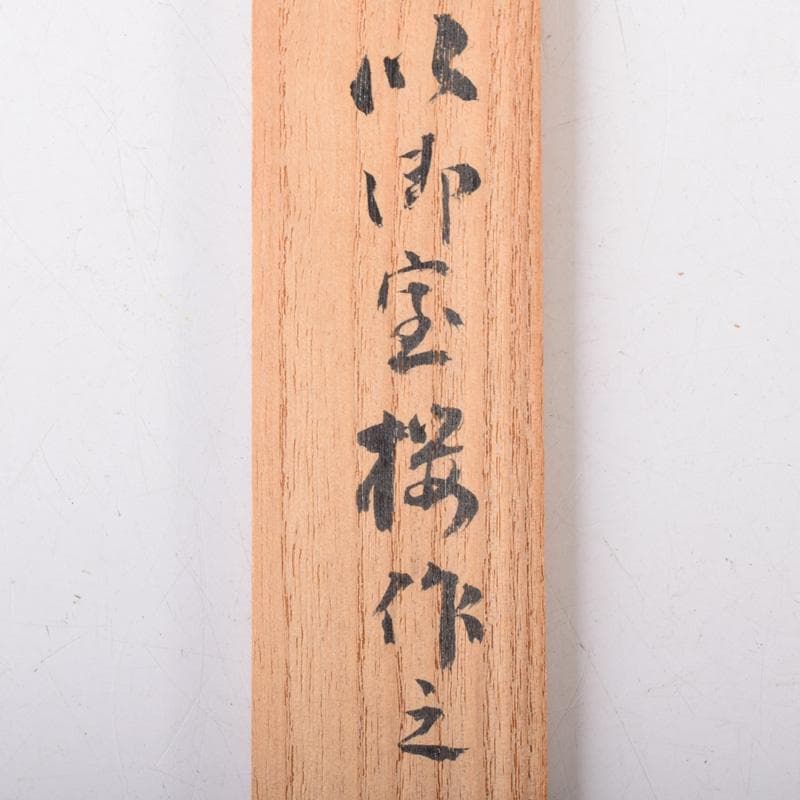 以御室桜作之